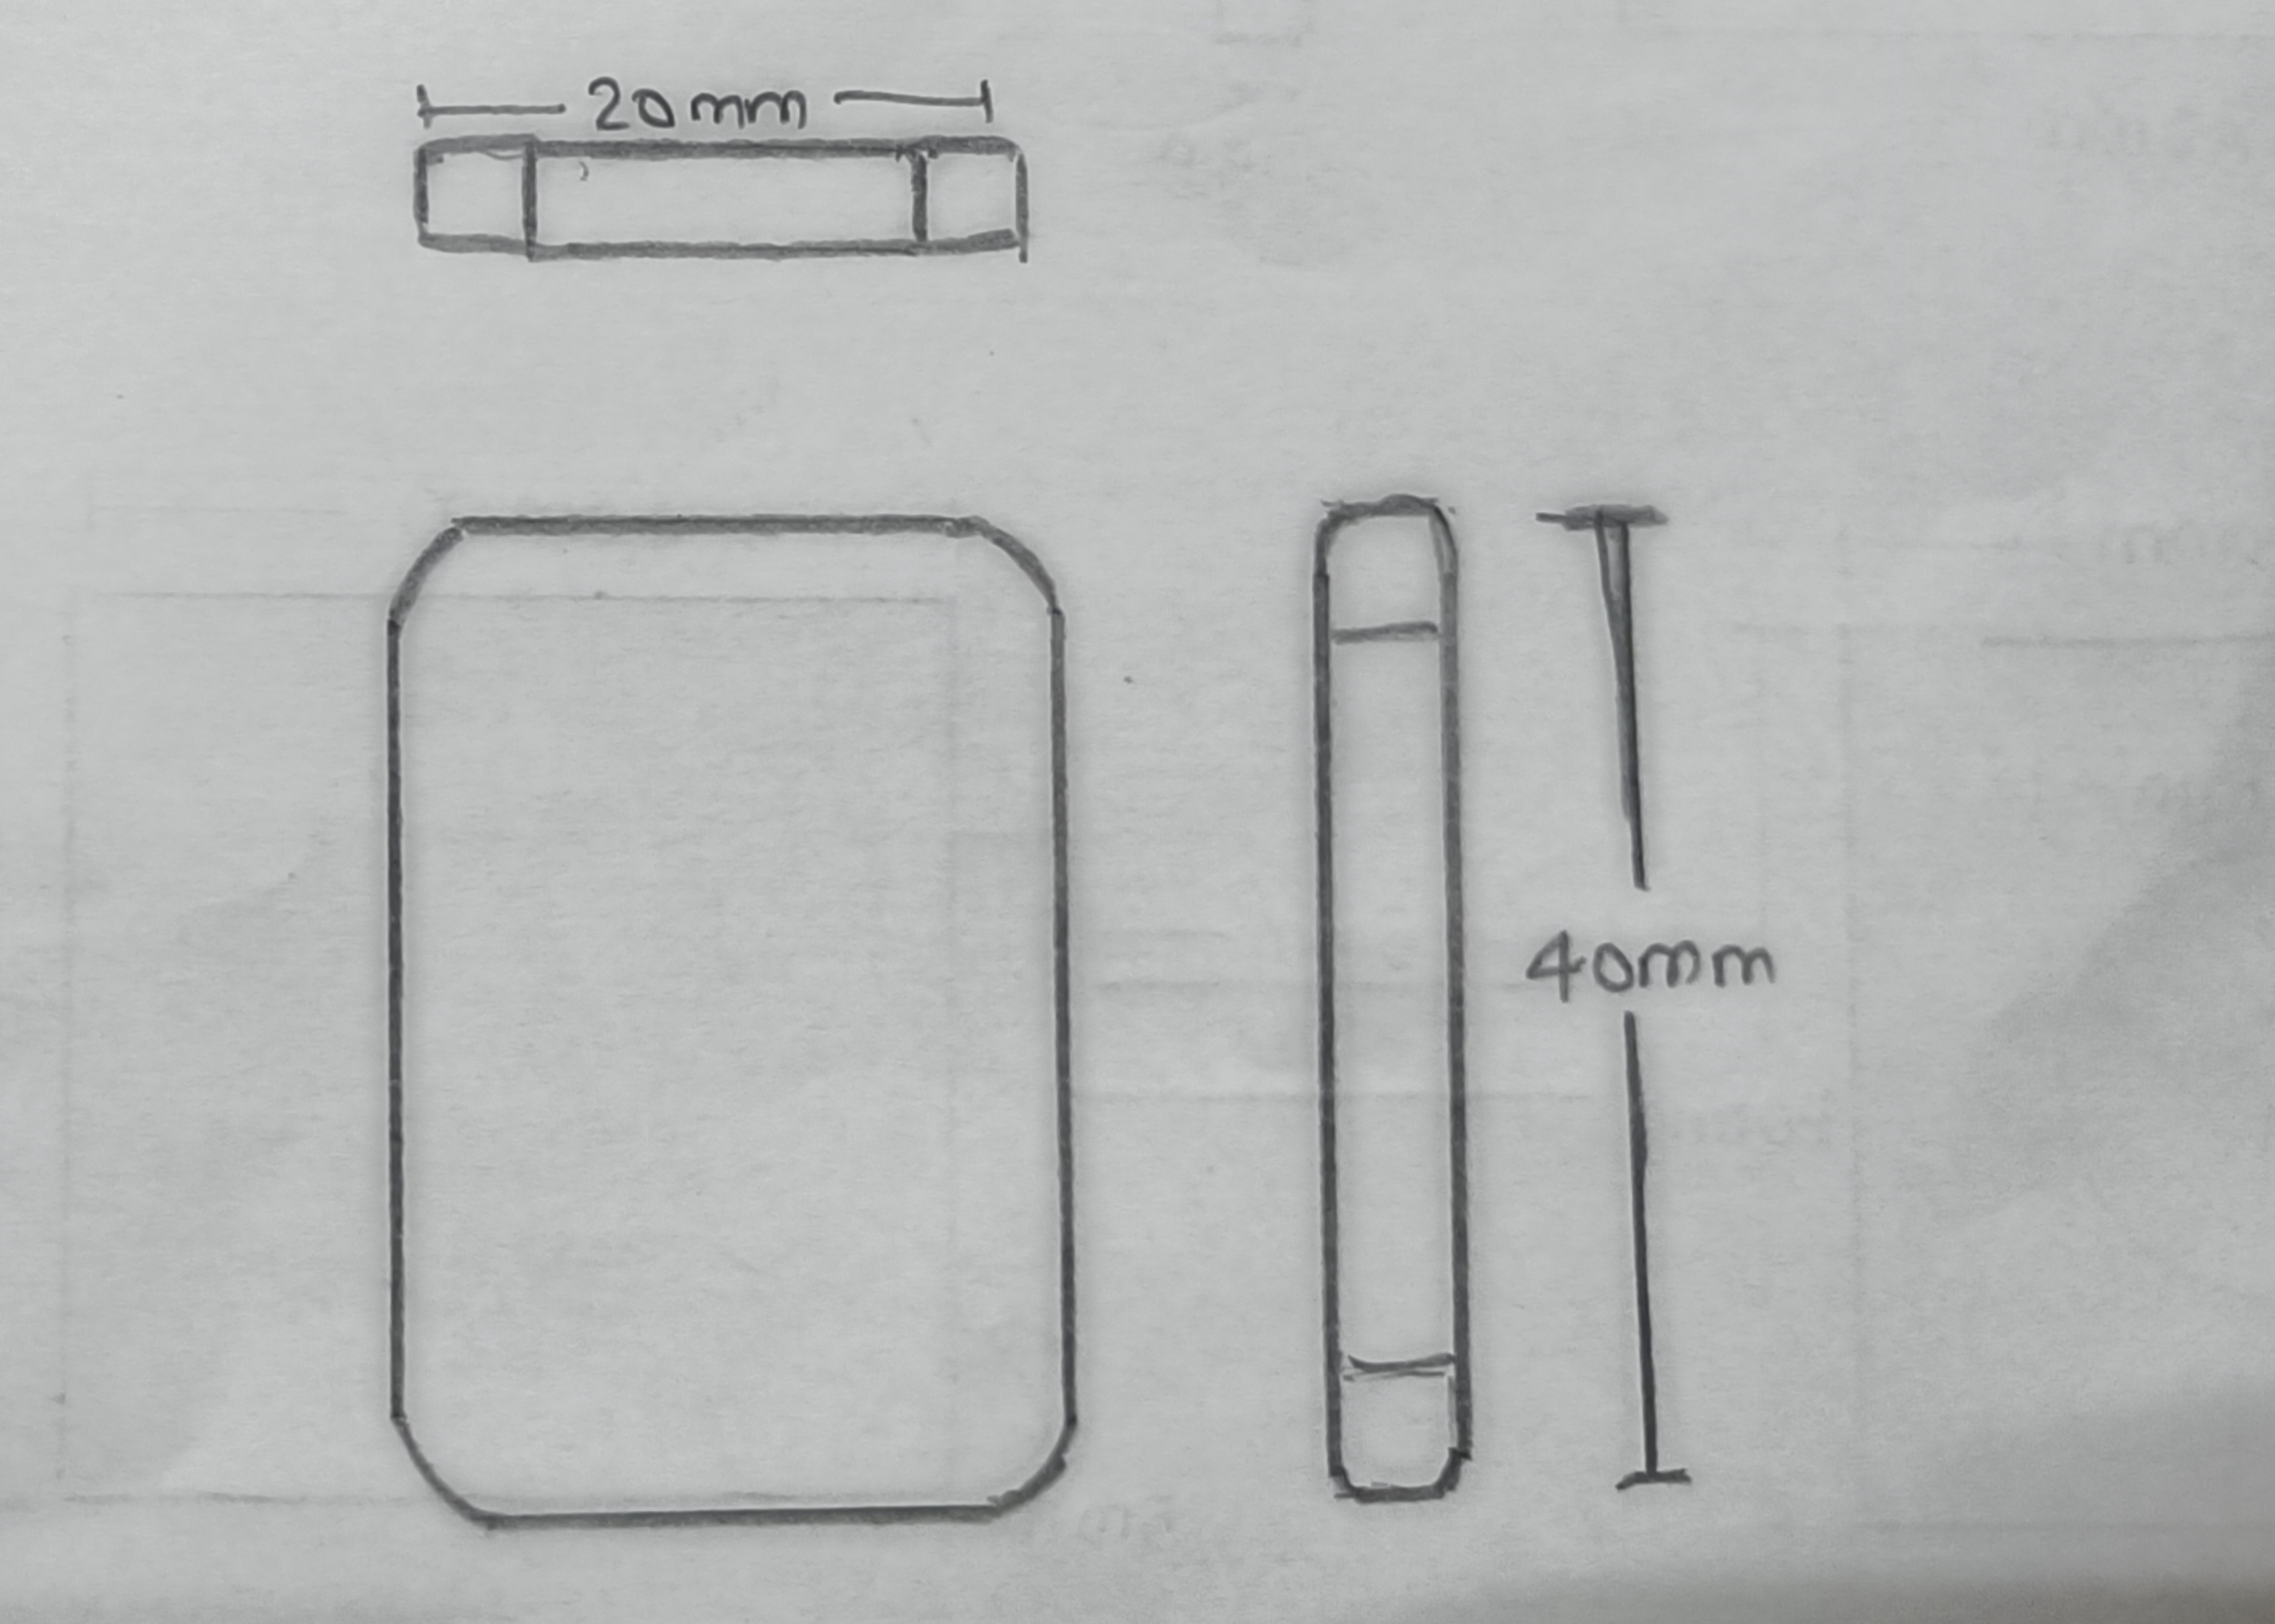 20mm
40mm